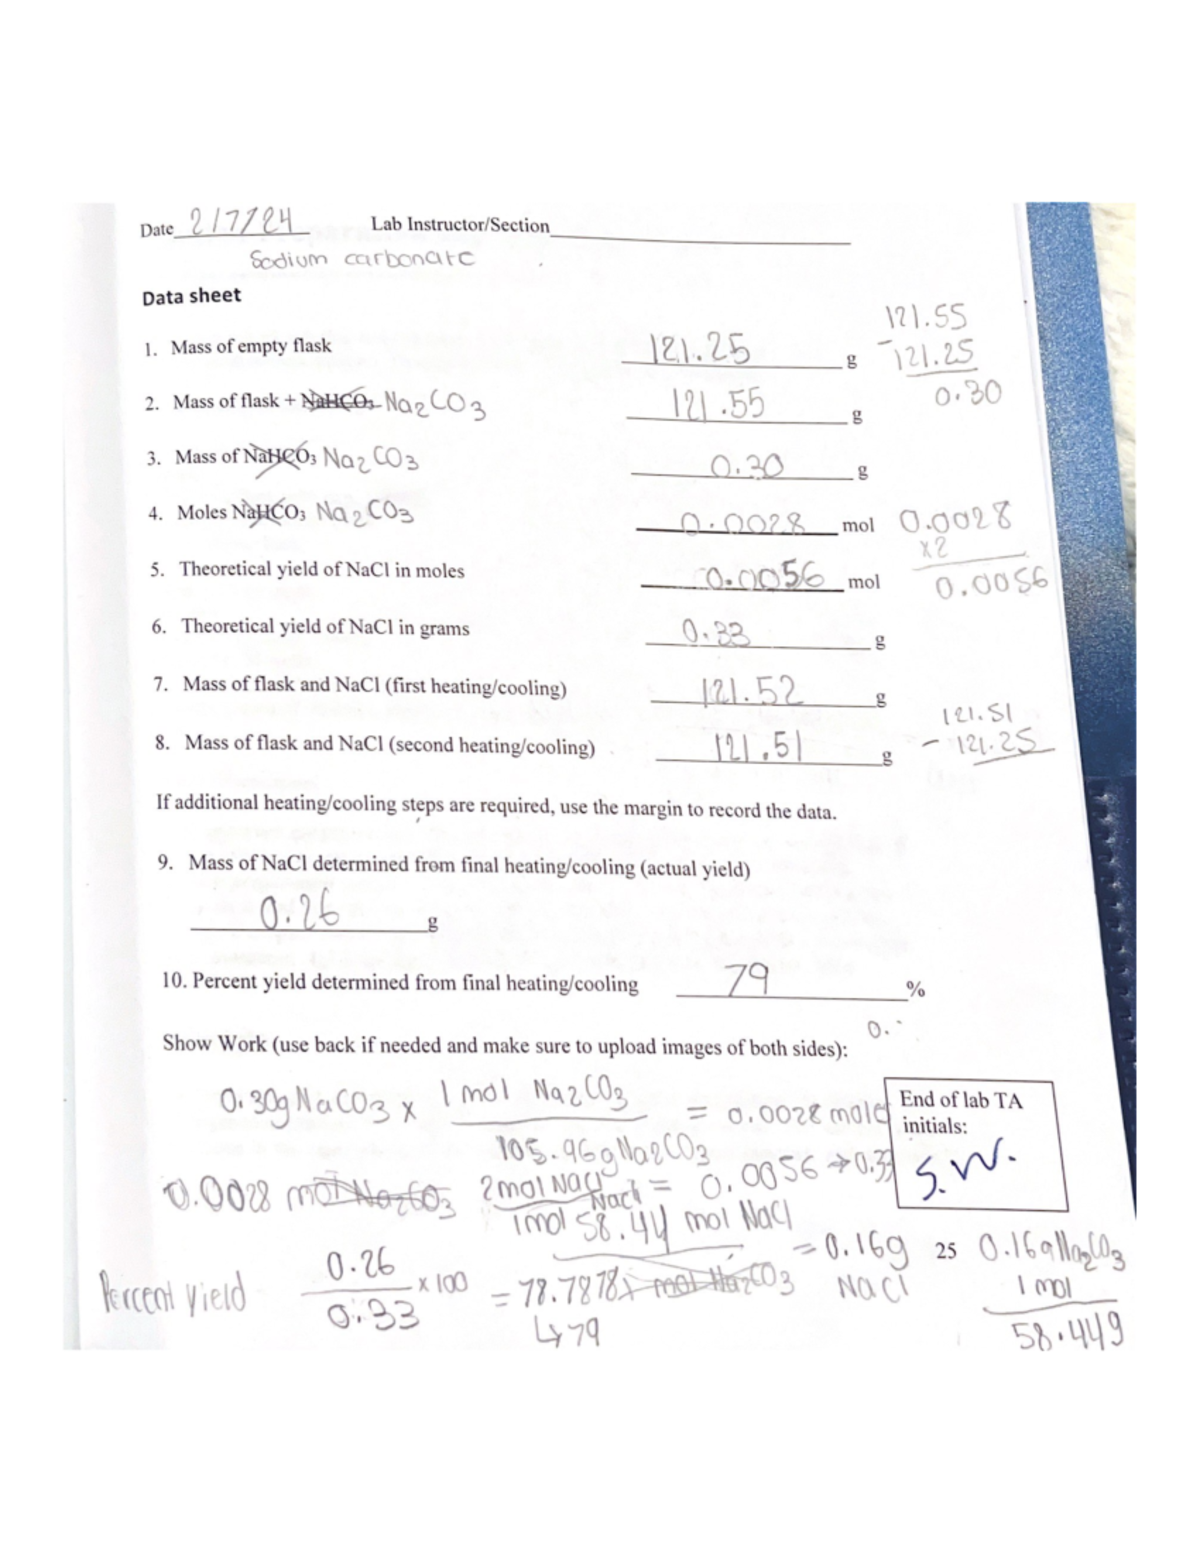 Date 2/7/24 Lab Instructor/Section
Sodium carbonate
Data sheet
121.55
1. Mass of empty flask 121.25 g -121.25
0.30
2. Mass of flask + NaHCO3 Na2CO3 121.55 g
3. Mass of NaHCO3 Na2CO3 0.30 g
4. Moles NaHCO3 Na2CO3 0.0028 mol 0.0028
x2
5. Theoretical yield of NaCl in moles 0.0056 mol 0.0056
6. Theoretical yield of NaCl in grams 0.33 g
7. Mass of flask and NaCl (first heating/cooling) 121.52 g
121.51
8. Mass of flask and NaCl (second heating/cooling) 121.51 g - 121.25
If additional heating/cooling steps are required, use the margin to record the data.
9. Mass of NaCl determined from final heating/cooling (actual yield)
0.26 g
10. Percent yield determined from final heating/cooling 79 %
0.
Show Work (use back if needed and make sure to upload images of both sides):
0.30g NaCO3 x 1 mol Na2CO3 = 0.0028 mole
105.96g Na2CO3
End of lab TA
initials:
S.W.
0.0028 mol Na2CO3 2 mol NaCl NaCl = 0.0056 → 0.33
1 mol 58.44 mol NaCl
= 0.16g 25 0.16g Na2CO3
NaCl 1 mol
58.449
Percent yield 0.26 x 100 = 78.7878 mol Na2CO3
0.33 ↳ 79